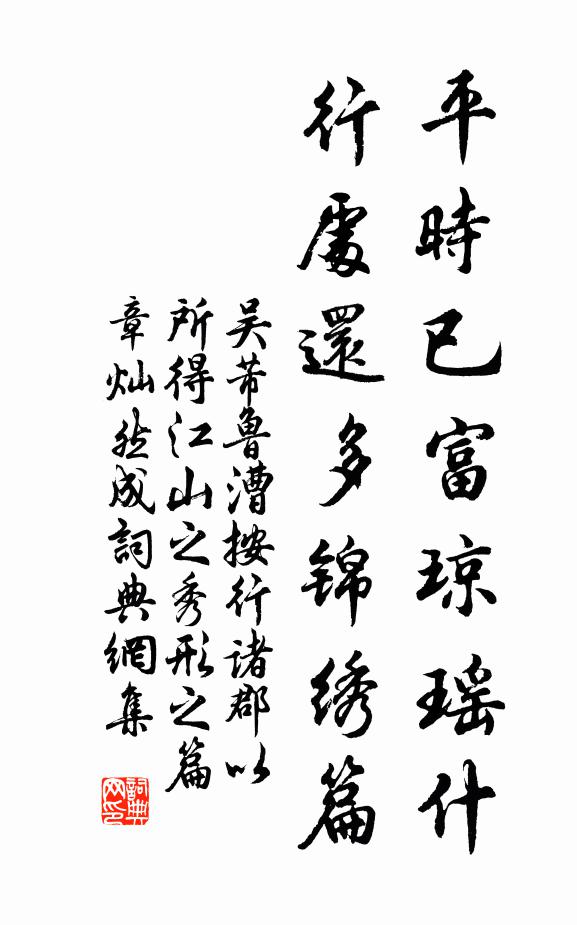 平時已富琼瑶什
行處還多锦绣篇
吴芾魯漕按行诸郡以
所得江山之秀形之篇
章灿然成詞典網集
詞典网印